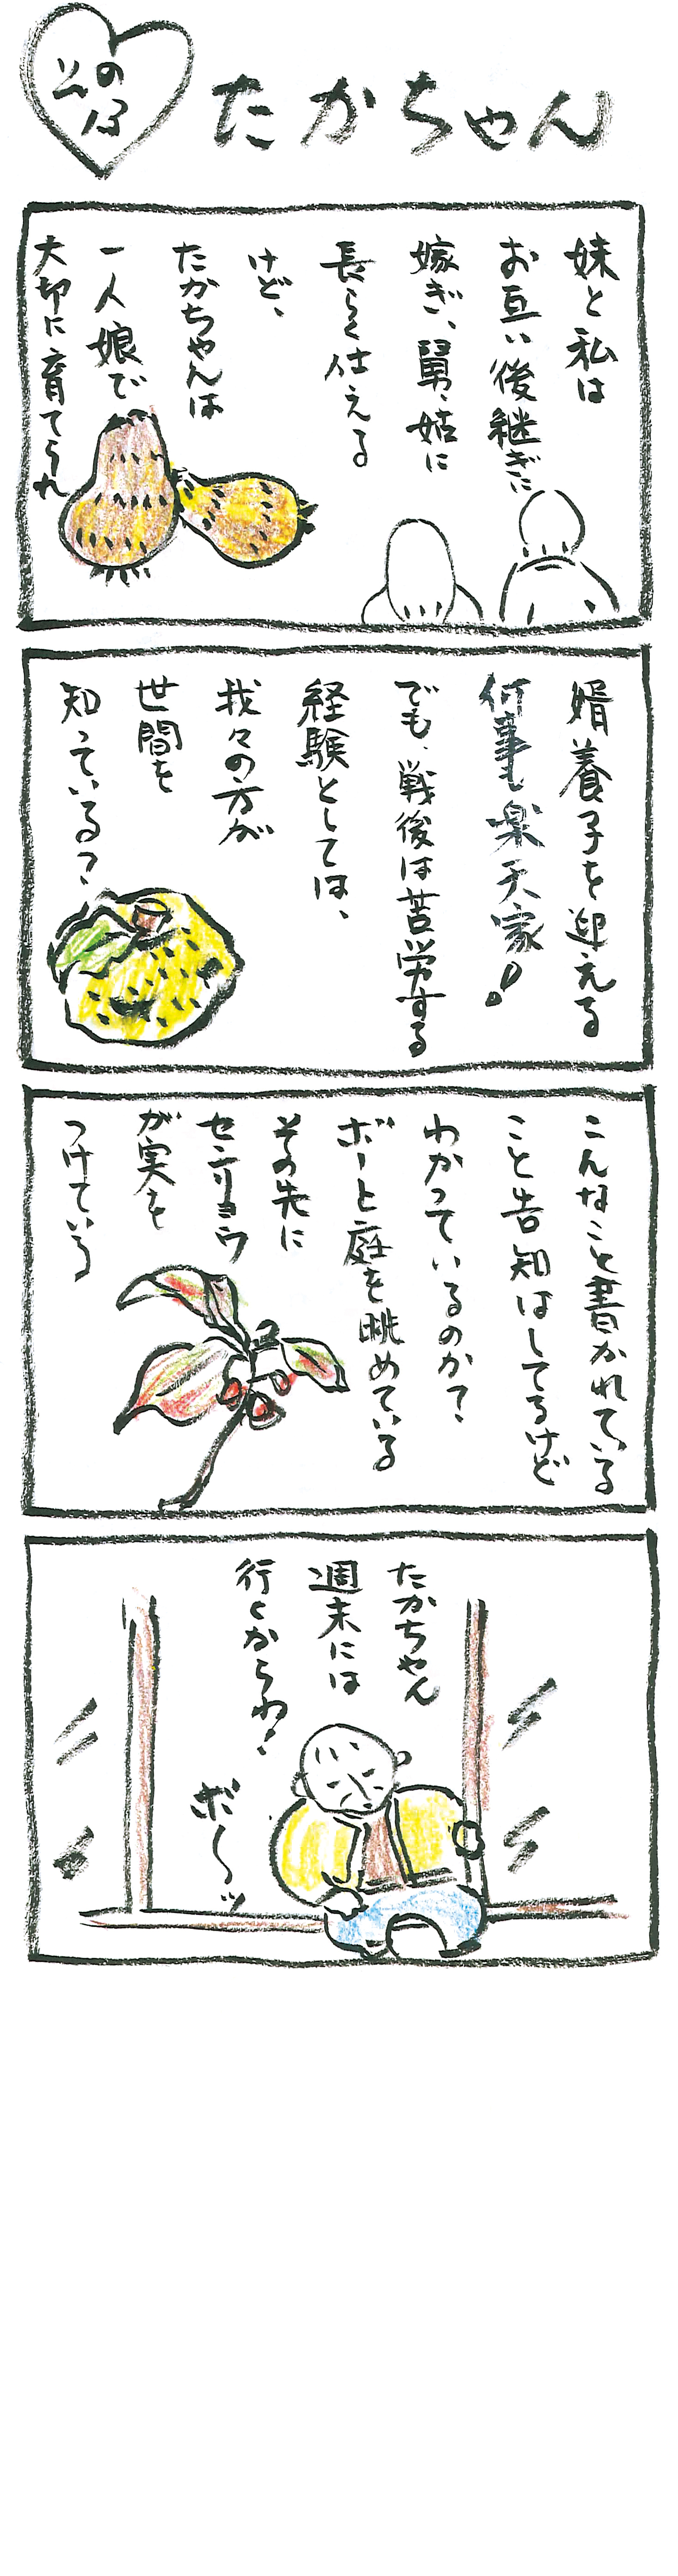 その
13
たかちゃん
妹と私は
お互い後継ぎに
嫁ぎ、舅、姑に
長らく仕える
けど、
たかちゃんは
一人娘で
大切に育てられ
婿養子を迎える
何事も楽天家!
でも、戦後は苦労する
経験としては、
我々の方が
世間を
知っている?
こんなこと書かれている
こと告知はしてるけど
わかっているのか?
ボーと庭を眺めている
その先に
センリョウ
が実を
つけている
たかちゃん
週末には
行くからね!
ボ〜ッ